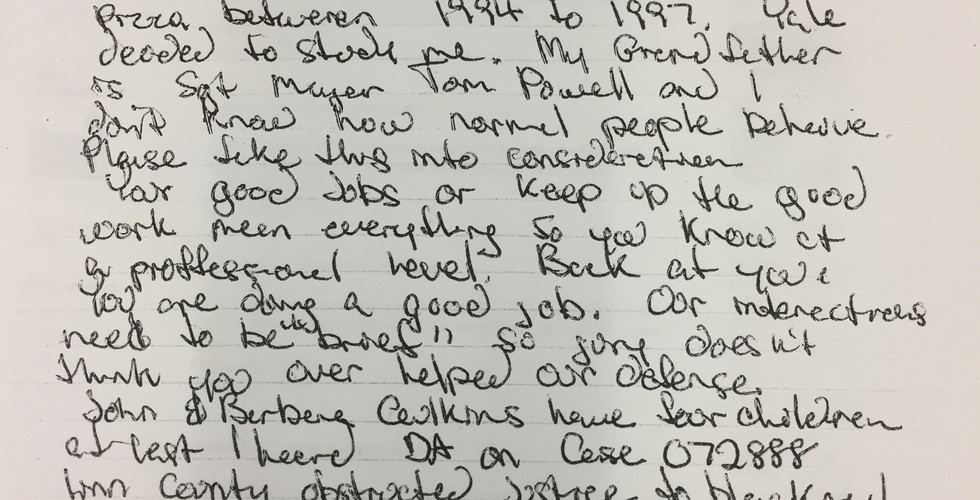 Pizza between 1994 to 1997. Yale
decided to stock me. My Grandfather
is Sgt Majer Tom Powell and I
don't know how normal people beheive.
Please take this into consideration
Your good Jobs or keep up the good
work meen everything so you know at
a proffessional level. Back at you:
You are doing a good job. Our
need to be "brief" so jury doesn't
think you over helped our defense.
John & Berbera Caulkins have four children
at last I heard DA on Case 072888
Linn County obstructed Justice. to